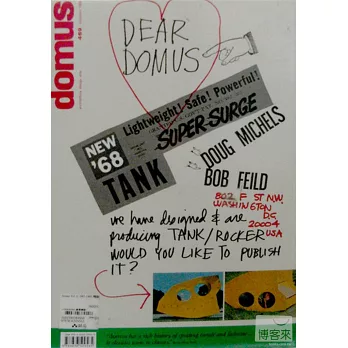 domus
DEAR
DOMUS
Lightweight! Safe! Powerful!
SUPER-SURGE
NEW
'68
TANK
DOUG MICHELS
BOB FEILD
802 F ST N.W.
WASHINGTON
D.C.
20004
USA
we have designed & are
producing TANK/ROCKER
WOULD YOU LIKE TO PUBLISH
IT?
博客來